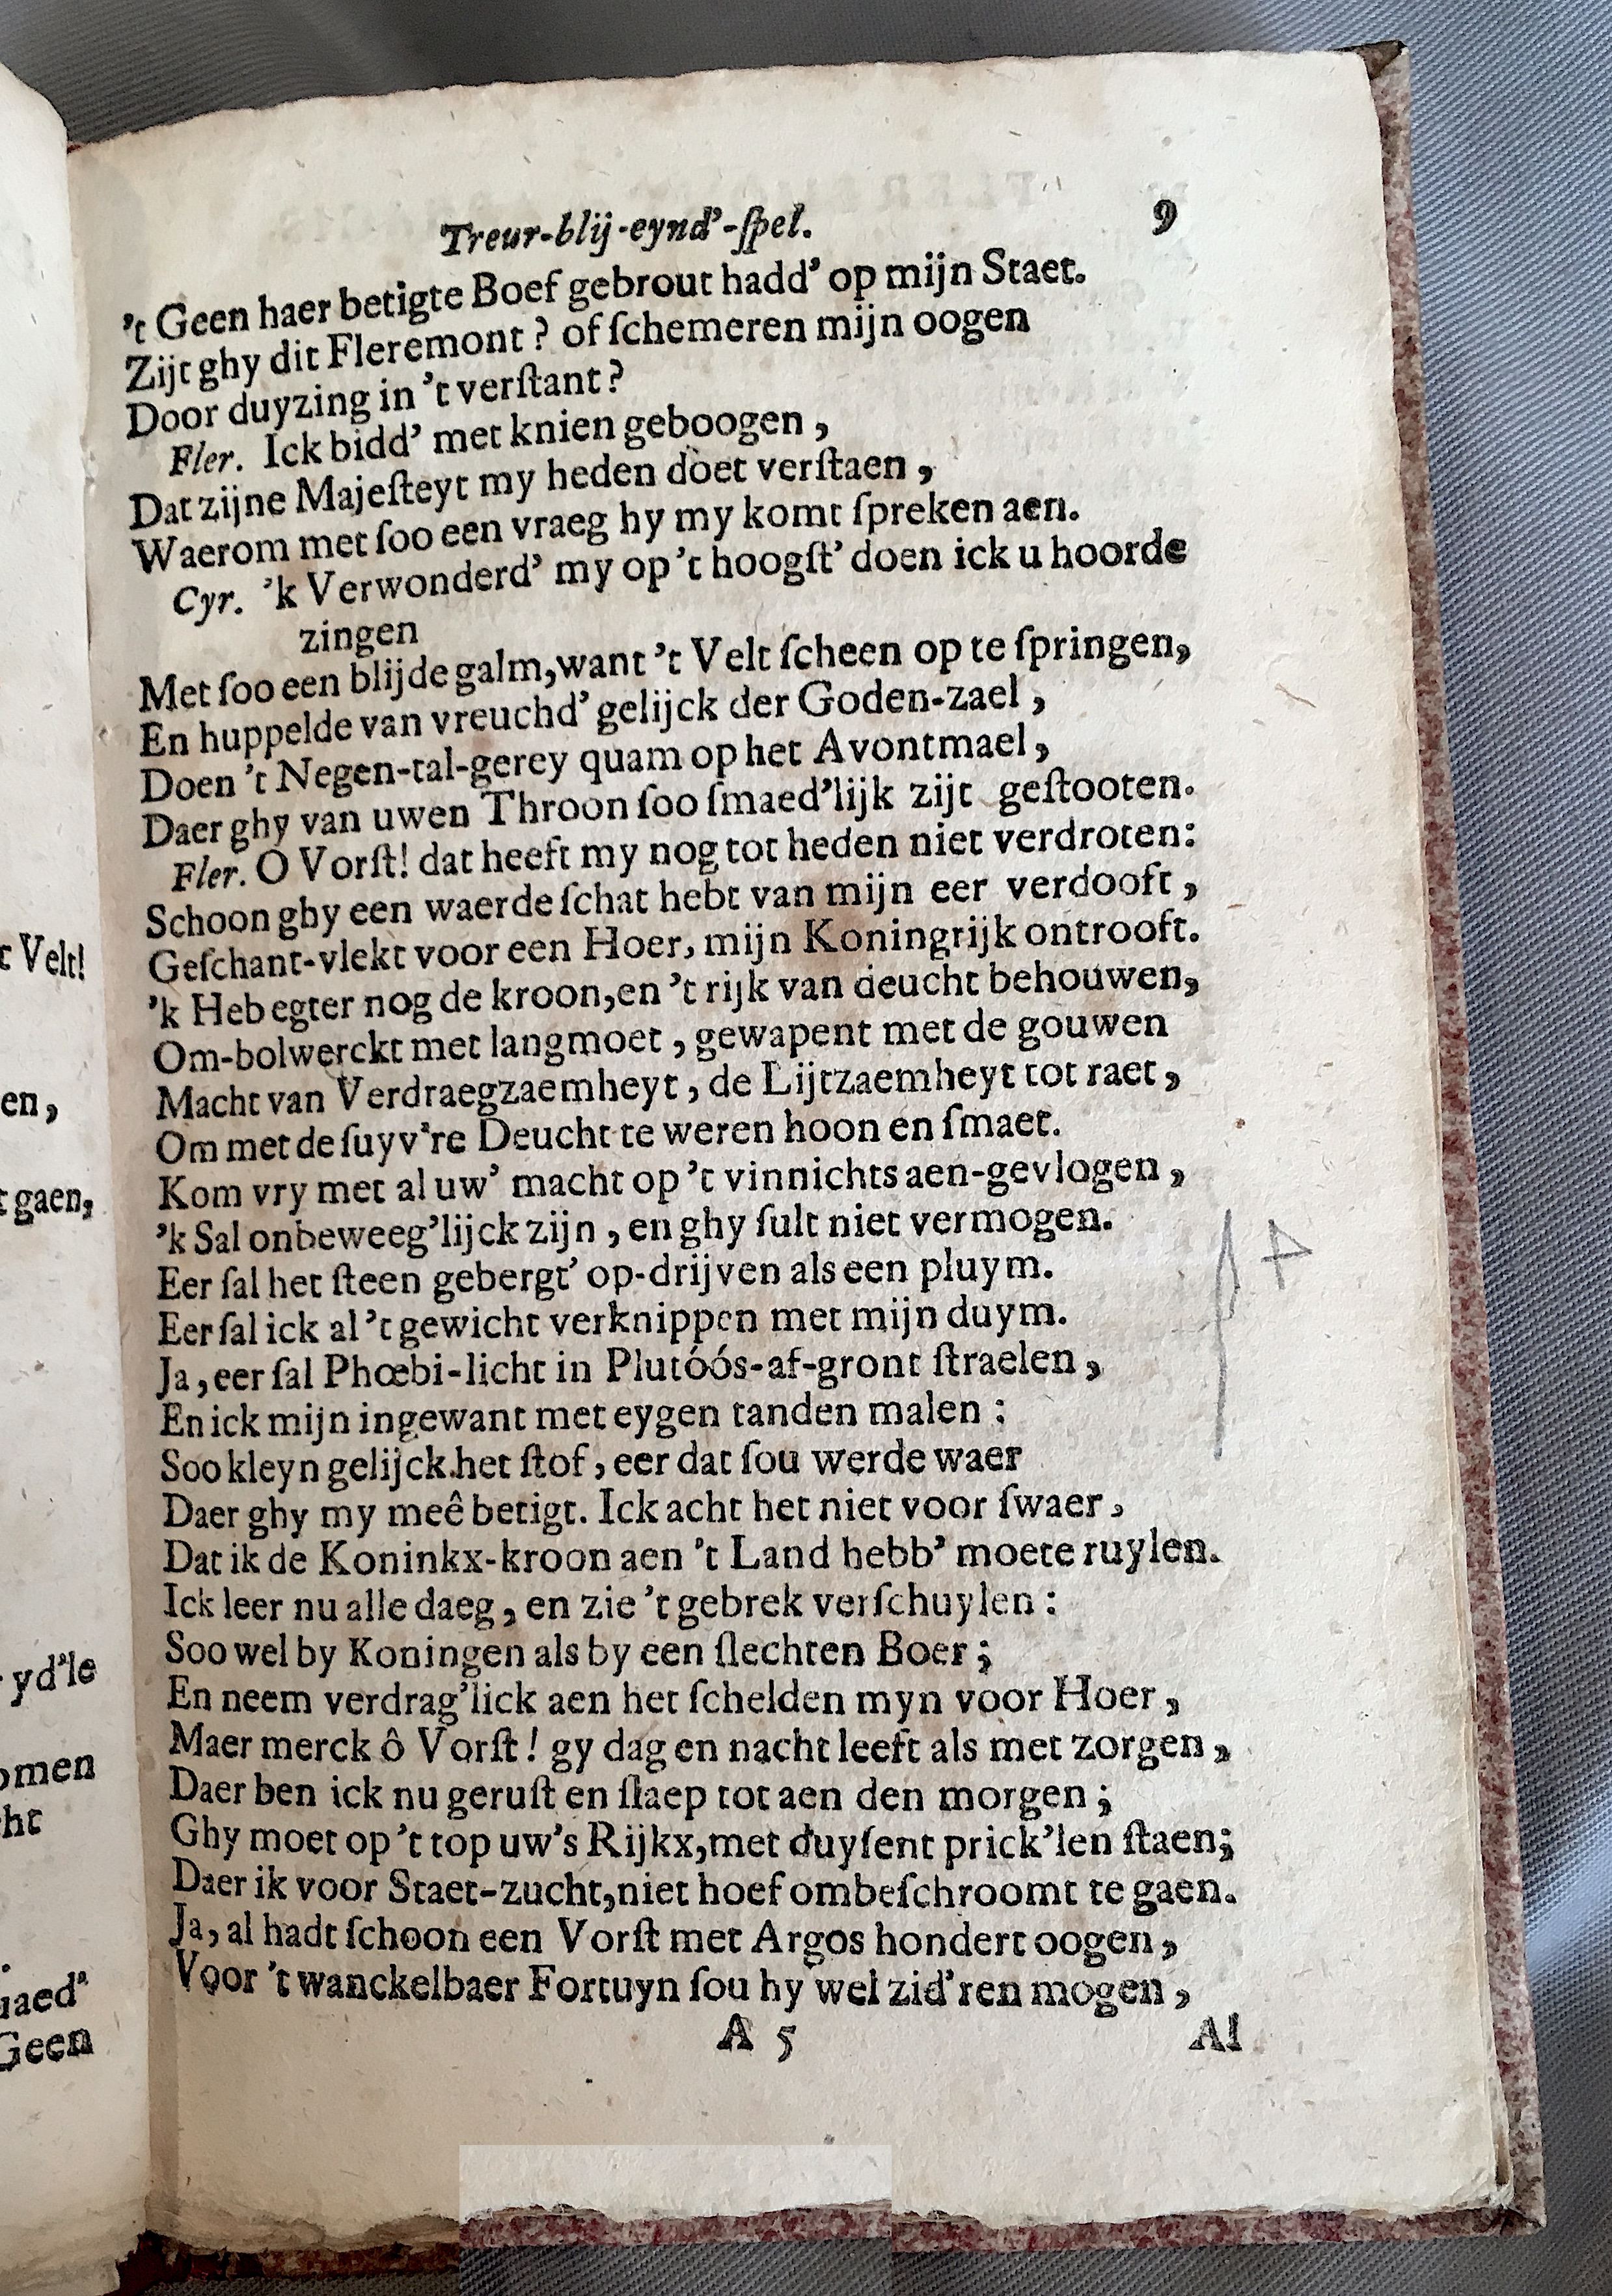 Treur-blij-eynd'-ſpel. 9
't Geen haer betigte Boef gebrout hadd' op mijn Staet.
Zijt ghy dit Fleremont? of ſchemeren mijn oogen
Door duyzing in 't verſtant?
Fler. Ick bidd' met knien geboogen,
Dat zijne Majeſteyt my heden doet verſtaen,
Waerom met ſoo een vraeg hy my komt ſpreken aen.
Cyr. 'k Verwonderd' my op 't hoogſt' doen ick u hoorde
zingen
Met ſoo een blijde galm, want 't Velt ſcheen op te ſpringen,
En huppelde van vreuchd' gelijck der Goden-zael,
Doen 't Negen-tal-gerey quam op het Avontmael,
Daer ghy van uwen Throon ſoo ſmaed'lijk zijt geſtooten.
Fler. O Vorſt! dat heeft my nog tot heden niet verdroten:
Schoon ghy een waerde ſchat hebt van mijn eer verdooft,
Geſchant-vlekt voor een Hoer, mijn Koningrijk ontrooft.
'k Heb egter nog de kroon, en 't rijk van deucht behouwen,
Om-bolwerckt met langmoet, gewapent met de gouwen
Macht van Verdraegzaemheyt, de Lijtzaemheyt tot raet,
Om met de ſuyv're Deucht te weren hoon en ſmaet.
Kom vry met al uw' macht op 't vinnichts aen-gevlogen,
'k Sal onbeweeg'lijck zijn, en ghy ſult niet vermogen.
Eer ſal het ſteen gebergt' op-drijven als een pluym.
Eer ſal ick al 't gewicht verknippen met mijn duym.
Ja, eer ſal Phœbi-licht in Plutóós-af-gront ſtraelen,
En ick mijn ingewant met eygen tanden malen:
Soo kleyn gelijck het ſtof, eer dat ſou werde waer
Daer ghy my meê betigt. Ick acht het niet voor ſwaer,
Dat ik de Koninkx-kroon aen 't Land hebb' moete ruylen.
Ick leer nu alle daeg, en zie 't gebrek verſchuylen:
Soo wel by Koningen als by een ſlechten Boer;
En neem verdrag'lick aen het ſchelden myn voor Hoer,
Maer merck ô Vorſt! gy dag en nacht leeft als met zorgen,
Daer ben ick nu geruſt en ſlaep tot aen den morgen;
Ghy moet op 't top uw's Rijkx, met duyſent prick'len ſtaen;
Daer ik voor Staet-zucht, niet hoef ombeſchroomt te gaen.
Ja, al hadt ſchoon een Vorſt met Argos hondert oogen,
Voor 't wanckelbaer Fortuyn ſou hy wel zid'ren mogen,
A 5 Al
4
t Velt!
en,
t gaen,
yd'le
omen
ht
aed'
Geen